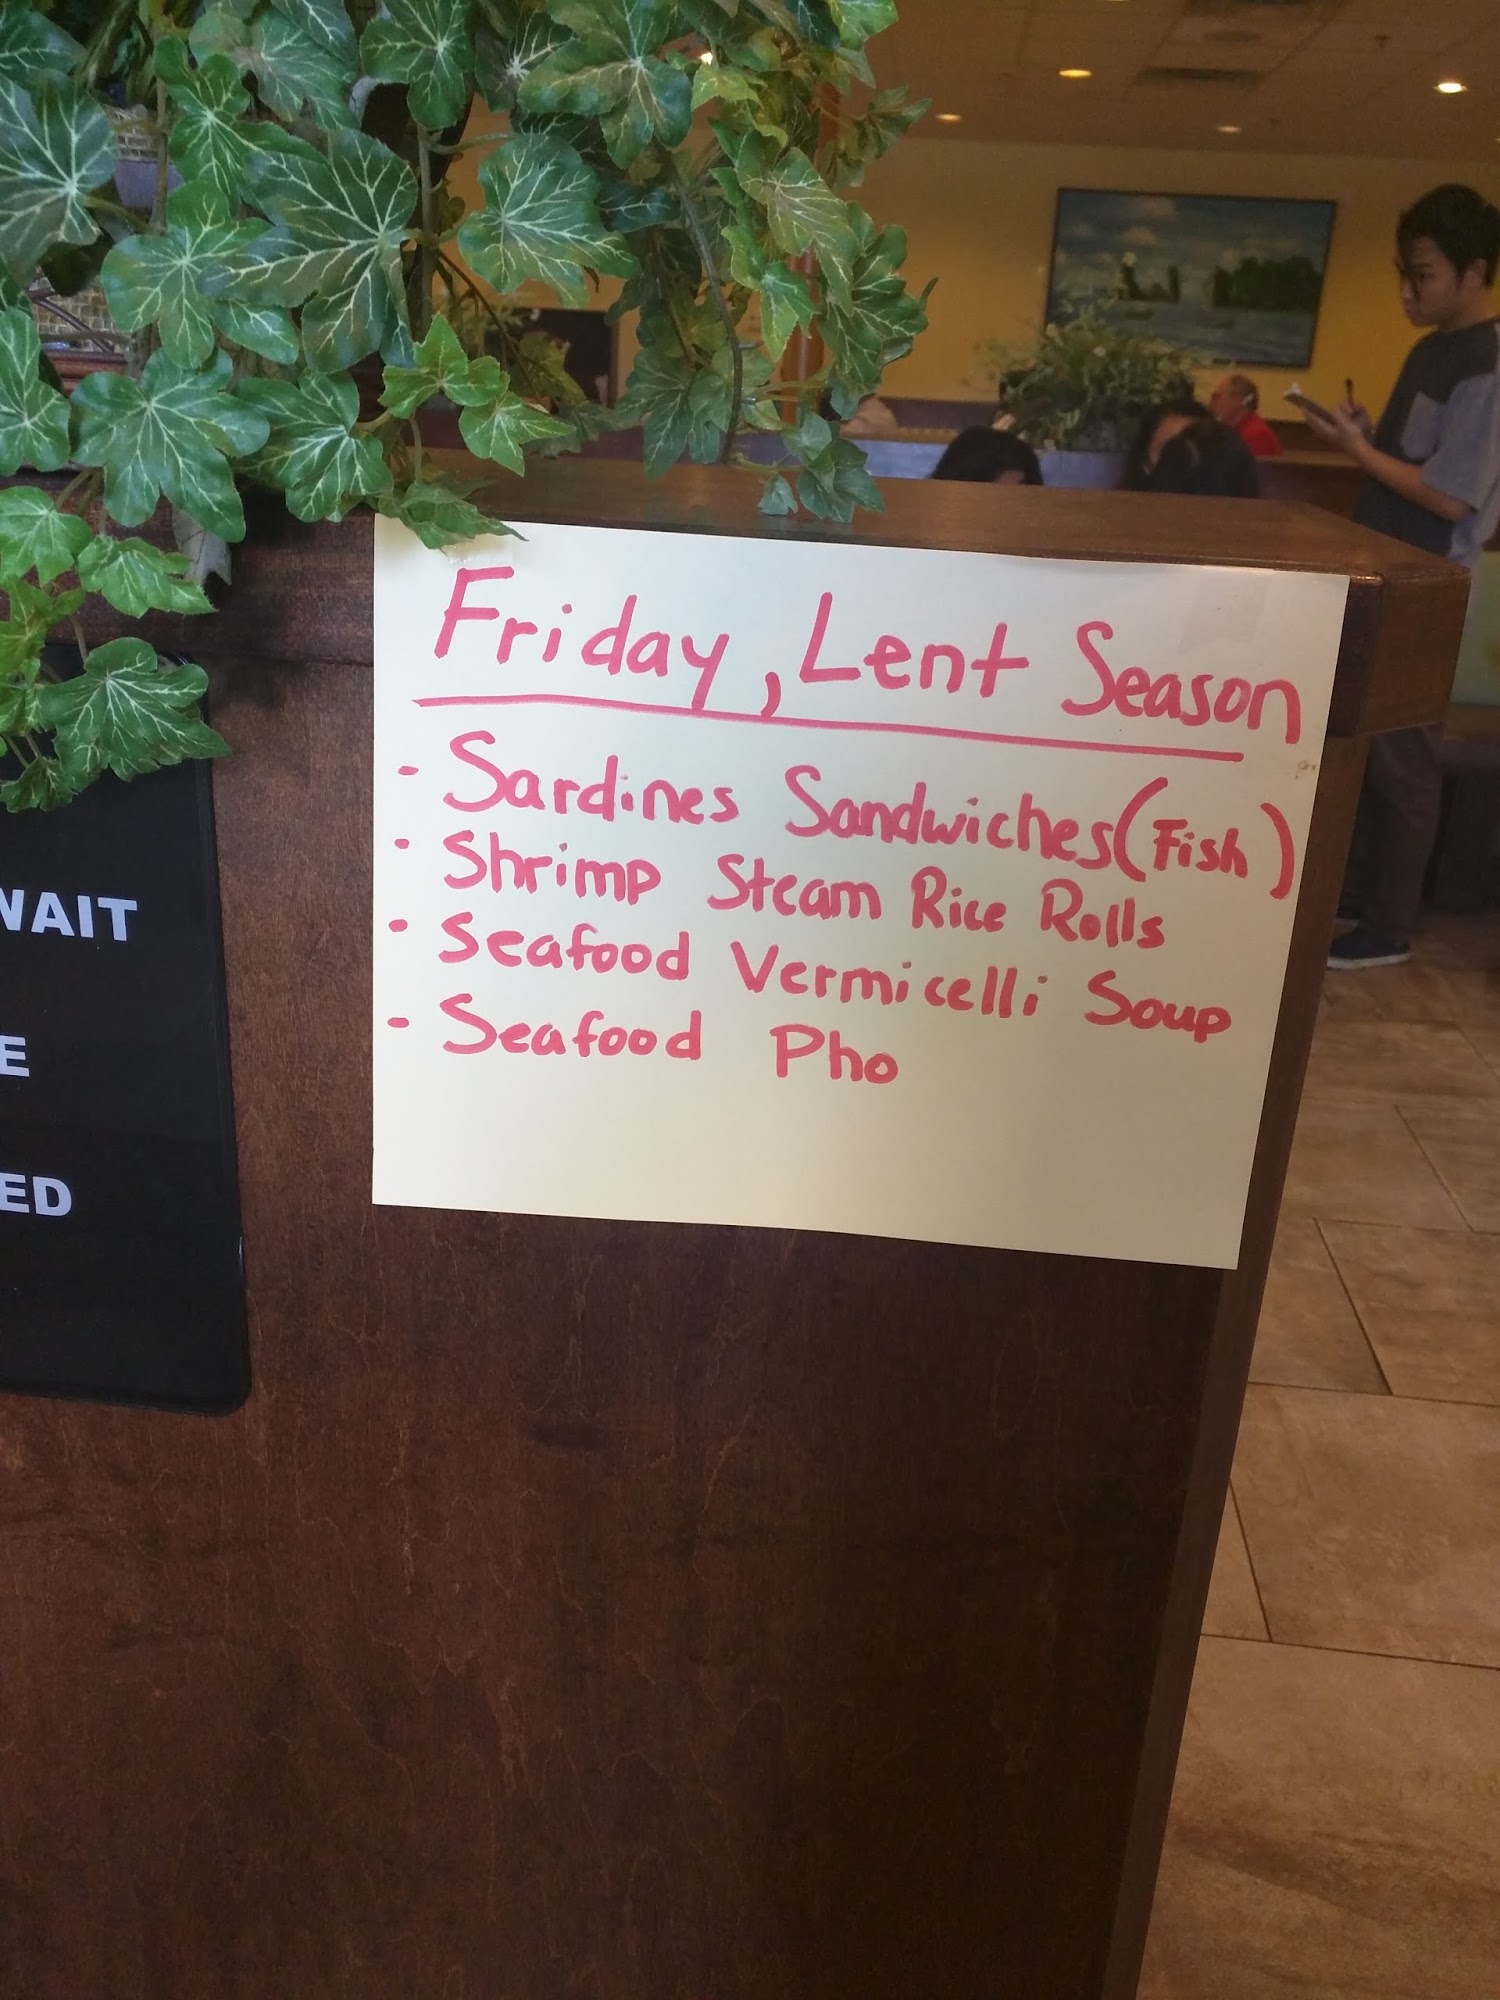 Friday, Lent Season
- Sardines Sandwiches (Fish)
- Shrimp Steam Rice Rolls
- Seafood Vermicelli Soup
- Seafood Pho
WAIT
E
ED